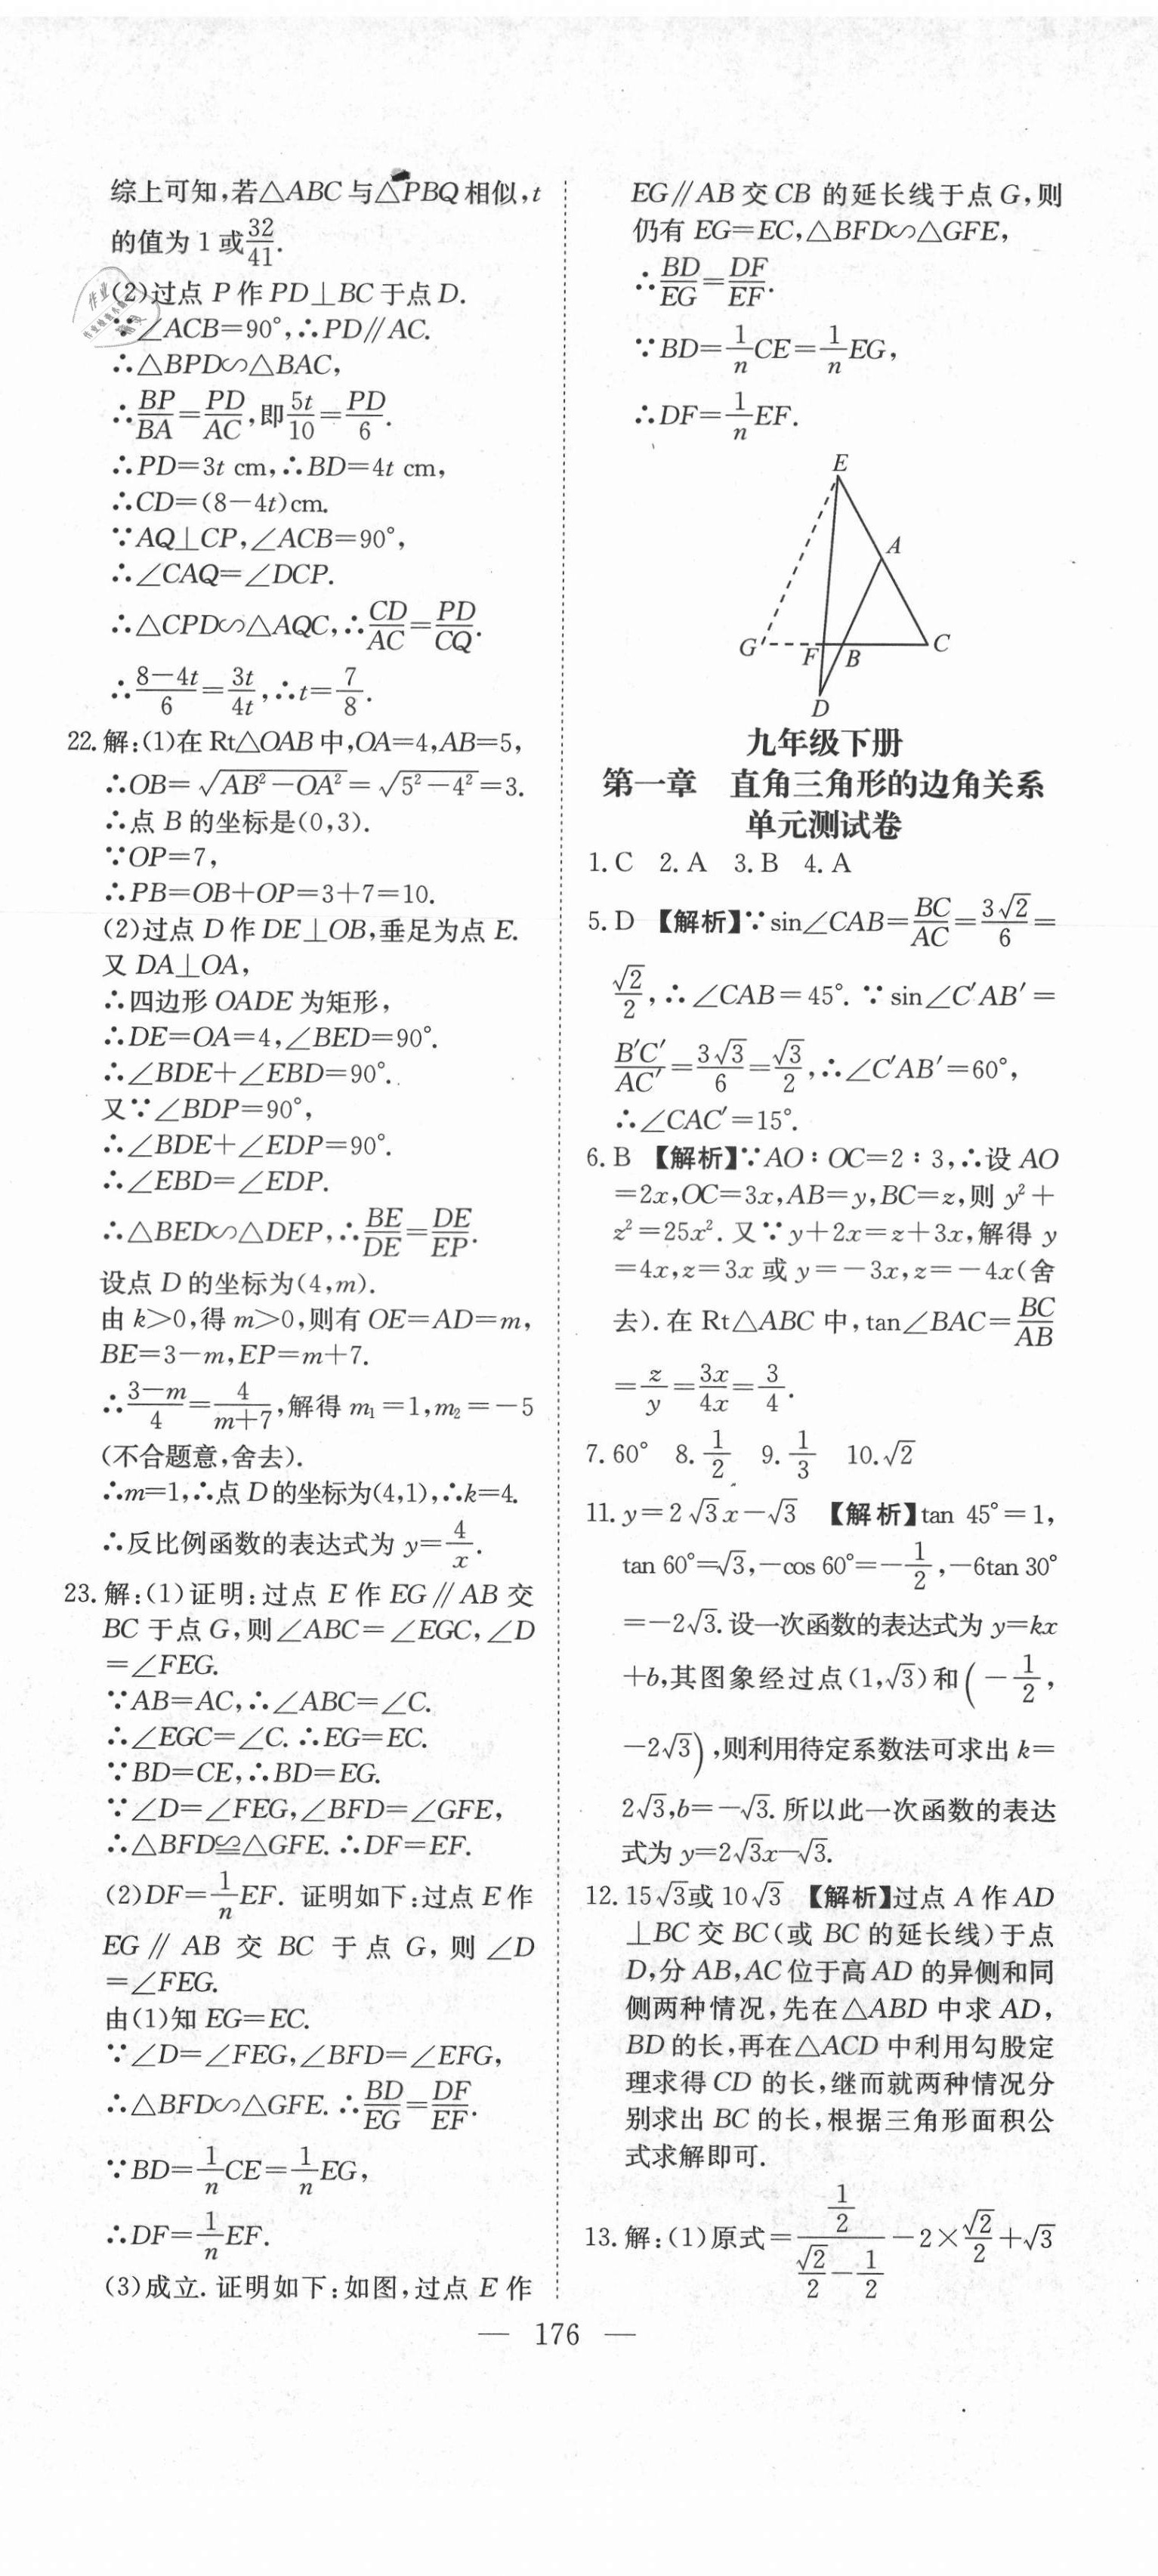 综上可知,若△ABC与△PBQ相似,t
的值为1或32/41.
(2)过点P作PD⊥BC于点D.
∵∠ACB=90°,∴PD∥AC.
∴△BPD∽△BAC,
∴BP/BA=PD/AC,即5t/10=PD/6.
∴PD=3t cm,∴BD=4t cm,
∴CD=(8-4t)cm.
∵AQ⊥CP,∠ACB=90°,
∴∠CAQ=∠DCP.
∴△CPD∽△AQC,∴CD/AC=PD/CQ.
∴(8-4t)/6=3t/4t,∴t=7/8.
22.解:(1)在Rt△OAB中,OA=4,AB=5,
∴OB=√(AB²-OA²)=√(5²-4²)=3.
∴点B的坐标是(0,3).
∵OP=7,
∴PB=OB+OP=3+7=10.
(2)过点D作DE⊥OB,垂足为点E.
又DA⊥OA,
∴四边形OADE为矩形,
∴DE=OA=4,∠BED=90°.
∴∠BDE+∠EBD=90°.
又∵∠BDP=90°,
∴∠BDE+∠EDP=90°.
∴∠EBD=∠EDP.
∴△BED∽△DEP,∴BE/DE=DE/EP.
设点D的坐标为(4,m).
由k>0,得m>0,则有OE=AD=m,
BE=3-m,EP=m+7.
∴(3-m)/4=4/(m+7),解得m₁=1,m₂=-5
(不合题意,舍去).
∴m=1,∴点D的坐标为(4,1),∴k=4.
∴反比例函数的表达式为y=4/x.
23.解:(1)证明:过点E作EG∥AB交
BC于点G,则∠ABC=∠EGC,∠D
=∠FEG.
∵AB=AC,∴∠ABC=∠C.
∴∠EGC=∠C.∴EG=EC.
∵BD=CE,∴BD=EG.
∵∠D=∠FEG,∠BFD=∠GFE,
∴△BFD≌△GFE.∴DF=EF.
(2)DF=1/n EF. 证明如下:过点E作
EG∥AB交BC于点G,则∠D
=∠FEG.
由(1)知EG=EC.
∵∠D=∠FEG,∠BFD=∠EFG,
∴△BFD∽△GFE.∴BD/EG=DF/EF.
∵BD=1/n CE=1/n EG,
∴DF=1/n EF.
(3)成立.证明如下:如图,过点E作
EG∥AB交CB的延长线于点G,则
仍有EG=EC,△BFD∽△GFE,
∴BD/EG=DF/EF.
∵BD=1/n CE=1/n EG,
∴DF=1/n EF.
E
A
G
F
B
C
D
九年级下册
第一章 直角三角形的边角关系
单元测试卷
1.C 2.A 3.B 4.A
5.D 【解析】∵sin∠CAB=BC/AC=3√2/6=
√2/2,∴∠CAB=45°.∵sin∠C′AB′=
B′C′/AC′=3√3/6=√3/2,∴∠C′AB′=60°,
∴∠CAC′=15°.
6.B 【解析】∵AO∶OC=2∶3,∴设AO
=2x,OC=3x,AB=y,BC=z,则y²+
z²=25x².又∵y+2x=z+3x,解得y
=4x,z=3x或y=-3x,z=-4x(舍
去).在Rt△ABC中,tan∠BAC=BC/AB
=z/y=3x/4x=3/4.
7.60° 8.1/2 9.1/3 10.√2
11.y=2√3x-√3 【解析】tan 45°=1,
tan 60°=√3,-cos 60°=-1/2,-6tan 30°
=-2√3.设一次函数的表达式为y=kx
+b,其图象经过点(1,√3)和(-1/2,
-2√3),则利用待定系数法可求出k=
2√3,b=-√3.所以此一次函数的表达
式为y=2√3x-√3.
12.15√3或10√3 【解析】过点A作AD
⊥BC交BC(或BC的延长线)于点
D,分AB,AC位于高AD的异侧和同
侧两种情况,先在△ABD中求AD,
BD的长,再在△ACD中利用勾股定
理求得CD的长,继而就两种情况分
别求出BC的长,根据三角形面积公
式求解即可.
13.解:(1)原式=(1/2)/(√2/2-1/2)-2×√2/2+√3
— 176 —